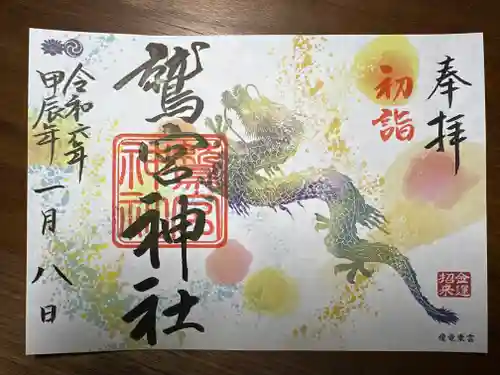 奉拝
初詣
鷲宮神社
鷲宮神社
令和六年
甲辰年
一月八日
金運
招来